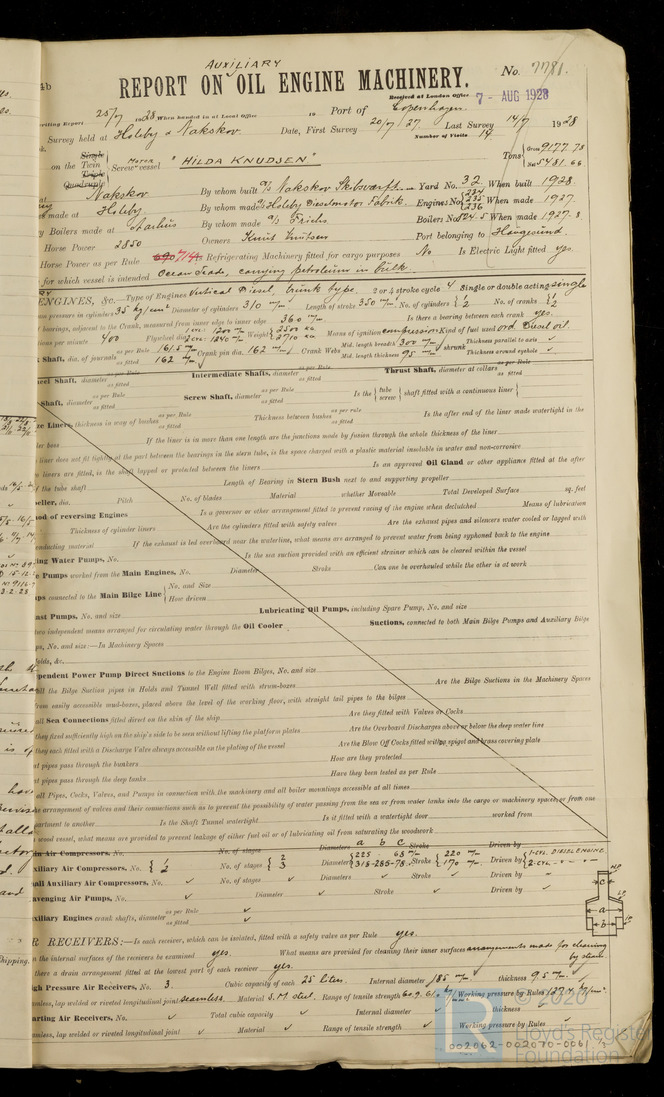 4b
AUXILIARY
REPORT ON OIL ENGINE MACHINERY.
No. 7781.
Received at London Office 7 - AUG 1928
writing Report 25/7 1928 When handed in at Local Office 19 Port of Copenhagen.
Survey held at Holeby & Nakskov. Date, First Survey 20/7/27. Last Survey 14/7 1928
Number of Visits 14
on the Single Twin Triple Quadruple Screw Motor vessel "HILDA KNUDSEN" Tons Gross 9177.78 Net 5481.66
at Nakskov By whom built A/S Nakskov Skibsværft Yard No. 32 When built 1928.
made at Holeby By whom made A/S Holeby Dieselmotor Fabrik. Engines No. 234 235 236 When made 1927.
Boilers made at Aarhus By whom made A/S Frichs Boilers No. When made 1927.8.
Horse Power 2850 Owners Knut Knutsen Port belonging to Haugesund.
Horse Power as per Rule Refrigerating Machinery fitted for cargo purposes No Is Electric Light fitted yes.
for which vessel is intended Ocean Trade, carrying petroleum in bulk.
ENGINES, &c.—Type of Engines Vertical Diesel, trunk type. 2 or 4 stroke cycle 4 Single or double acting single
pressure in cylinders 35 kg/cm² Diameter of cylinders 310 m/m Length of stroke 350 m/m No. of cylinders { 1 2 No. of cranks { 1 2
of bearings, adjacent to the Crank, measured from inner edge to inner edge 360 m/m Is there a bearing between each crank yes.
per minute 400 Flywheel dia. 1 cyl: 1200 m/m 2 cyl: 1840 m/m Weight 2500 kg 2710 kg Means of ignition compression Kind of fuel used ord. Diesel oil.
Shaft, dia. of journals as per Rule 161.5 m/m as fitted 162 m/m Crank pin dia. 162 m/m Crank Webs Mid. length breadth 300 m/m Mid. length thickness 95 m/m shrunk Thickness parallel to axis ✓ Thickness around eyehole ✓
Wheel Shaft, diameter as per Rule as fitted Intermediate Shafts, diameter as per Rule as fitted Thrust Shaft, diameter at collars as per Rule as fitted
Shaft, diameter as per Rule as fitted Screw Shaft, diameter as per Rule as fitted Is the { tube screw } shaft fitted with a continuous liner {
Liners, thickness in way of bushes as per Rule as fitted Thickness between bushes as per rule as fitted Is the after end of the liner made watertight in the
boss If the liner is in more than one length are the junctions made by fusion through the whole thickness of the liner
liner does not fit tightly at the part between the bearings in the stern tube, is the space charged with a plastic material insoluble in water and non-corrosive
liners are fitted, is the shaft lapped or protected between the liners Is an approved Oil Gland or other appliance fitted at the after
the tube shaft Length of Bearing in Stern Bush next to and supporting propeller
peller, dia. Pitch No. of blades Material whether Moveable Total Developed Surface sq. feet
of reversing Engines Is a governor or other arrangement fitted to prevent racing of the engine when declutched Means of lubrication
Thickness of cylinder liners Are the cylinders fitted with safety valves Are the exhaust pipes and silencers water cooled or lagged with
conducting material If the exhaust is led overboard near the waterline, what means are arranged to prevent water from being syphoned back to the engine
ing Water Pumps, No. Is the sea suction provided with an efficient strainer which can be cleared within the vessel
Pumps worked from the Main Engines, No. Diameter Stroke Can one be overhauled while the other is at work
connected to the Main Bilge Line { No. and Size How driven
ast Pumps, No. and size Lubricating Oil Pumps, including Spare Pump, No. and size
two independent means arranged for circulating water through the Oil Cooler Suctions, connected to both Main Bilge Pumps and Auxiliary Bilge
ps, No. and size:—In Machinery Spaces
Holds, &c.
ependent Power Pump Direct Suctions to the Engine Room Bilges, No. and size
all the Bilge Suction pipes in Holds and Tunnel Well fitted with strum-boxes Are the Bilge Suctions in the Machinery Spaces
from easily accessible mud-boxes, placed above the level of the working floor, with straight tail pipes to the bilges
all Sea Connections fitted direct on the skin of the ship Are they fitted with Valves or Cocks
they fixed sufficiently high on the ship's side to be seen without lifting the platform plates Are the Overboard Discharges above or below the deep water line
they each fitted with a Discharge Valve always accessible on the plating of the vessel Are the Blow Off Cocks fitted with a spigot and brass covering plate
at pipes pass through the bunkers How are they protected
at pipes pass through the deep tanks Have they been tested as per Rule
all Pipes, Cocks, Valves, and Pumps in connection with the machinery and all boiler mountings accessible at all times
arrangement of valves and their connections such as to prevent the possibility of water passing from the sea or from water tanks into the cargo or machinery spaces, or from one
partment to another Is the Shaft Tunnel watertight Is it fitted with a watertight door worked from
wood vessel, what means are provided to prevent leakage of either fuel oil or of lubricating oil from saturating the woodwork
Air Compressors, No. No. of stages Diameters a b c Stroke Driven by
iliary Air Compressors, No. { 1 2 No. of stages { 2 3 Diameters { 225 68 m/m 315-285-78 Stroke { 220 m/m 170 m/m Driven by { 1-CYL. DIESEL ENGINE. 2-CYL. " "
all Auxiliary Air Compressors, No. ✓ No. of stages ✓ Diameters ✓ Stroke ✓ Driven by ✓
avenging Air Pumps, No. ✓ Diameter ✓ Stroke ✓ Driven by ✓
uxiliary Engines crank shafts, diameter as per Rule ✓ as fitted ✓
H.P. c L.P. a b
R RECEIVERS:—Is each receiver, which can be isolated, fitted with a safety valve as per Rule yes.
the internal surfaces of the receivers be examined yes. What means are provided for cleaning their inner surfaces arrangements made for cleaning by steam.
there a drain arrangement fitted at the lowest part of each receiver yes.
gh Pressure Air Receivers, No. 3. Cubic capacity of each 25 liters. Internal diameter 185 m/m. thickness 9.5 m/m.
amless, lap welded or riveted longitudinal joint seamless. Material S.M. steel. Range of tensile strength Working pressure by Rules
arting Air Receivers, No. ✓ Total cubic capacity ✓ Internal diameter ✓ thickness
amless, lap welded or riveted longitudinal joint ✓ Material ✓ Range of tensile strength ✓ Working pressure by Rules ✓
© 2020
Lloyd's Register
Foundation
LR
002062-002070-0061